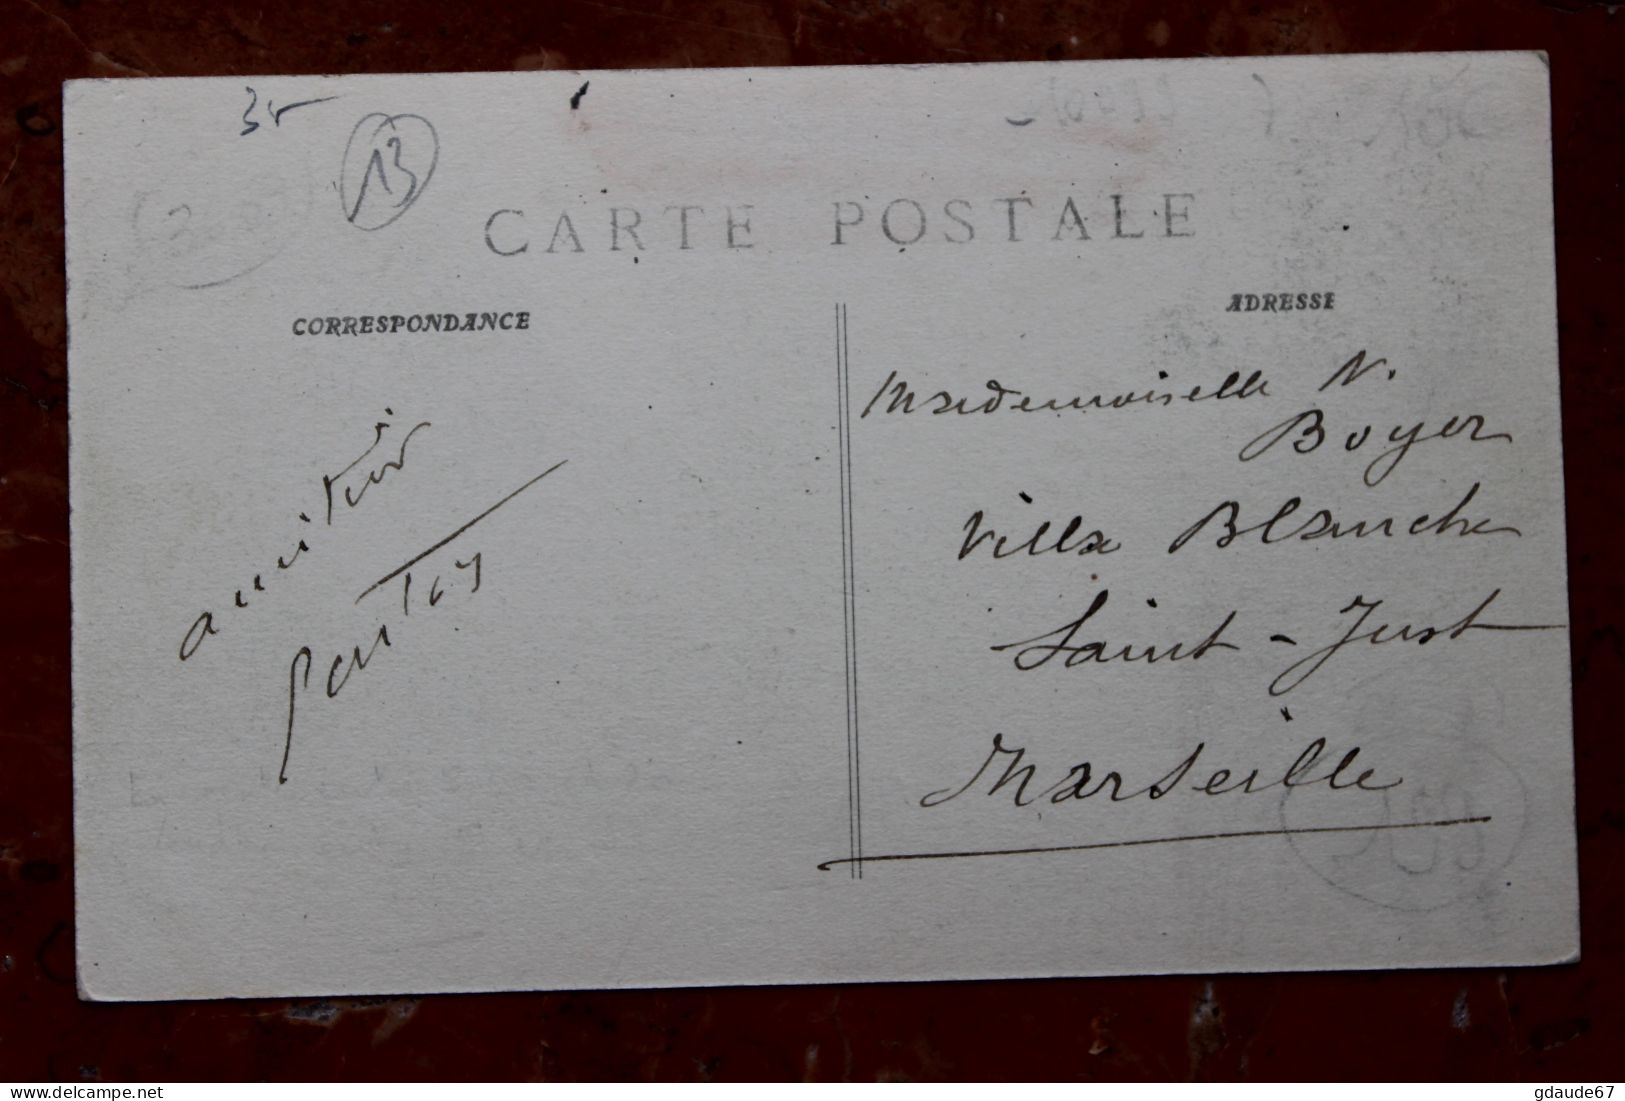 35
13
CARTE POSTALE
CORRESPONDANCE
ADRESSE
amitiés
Mademoiselle N.
Boyer
Villa Blanche
Saint-Just
Marseille
gdaude67